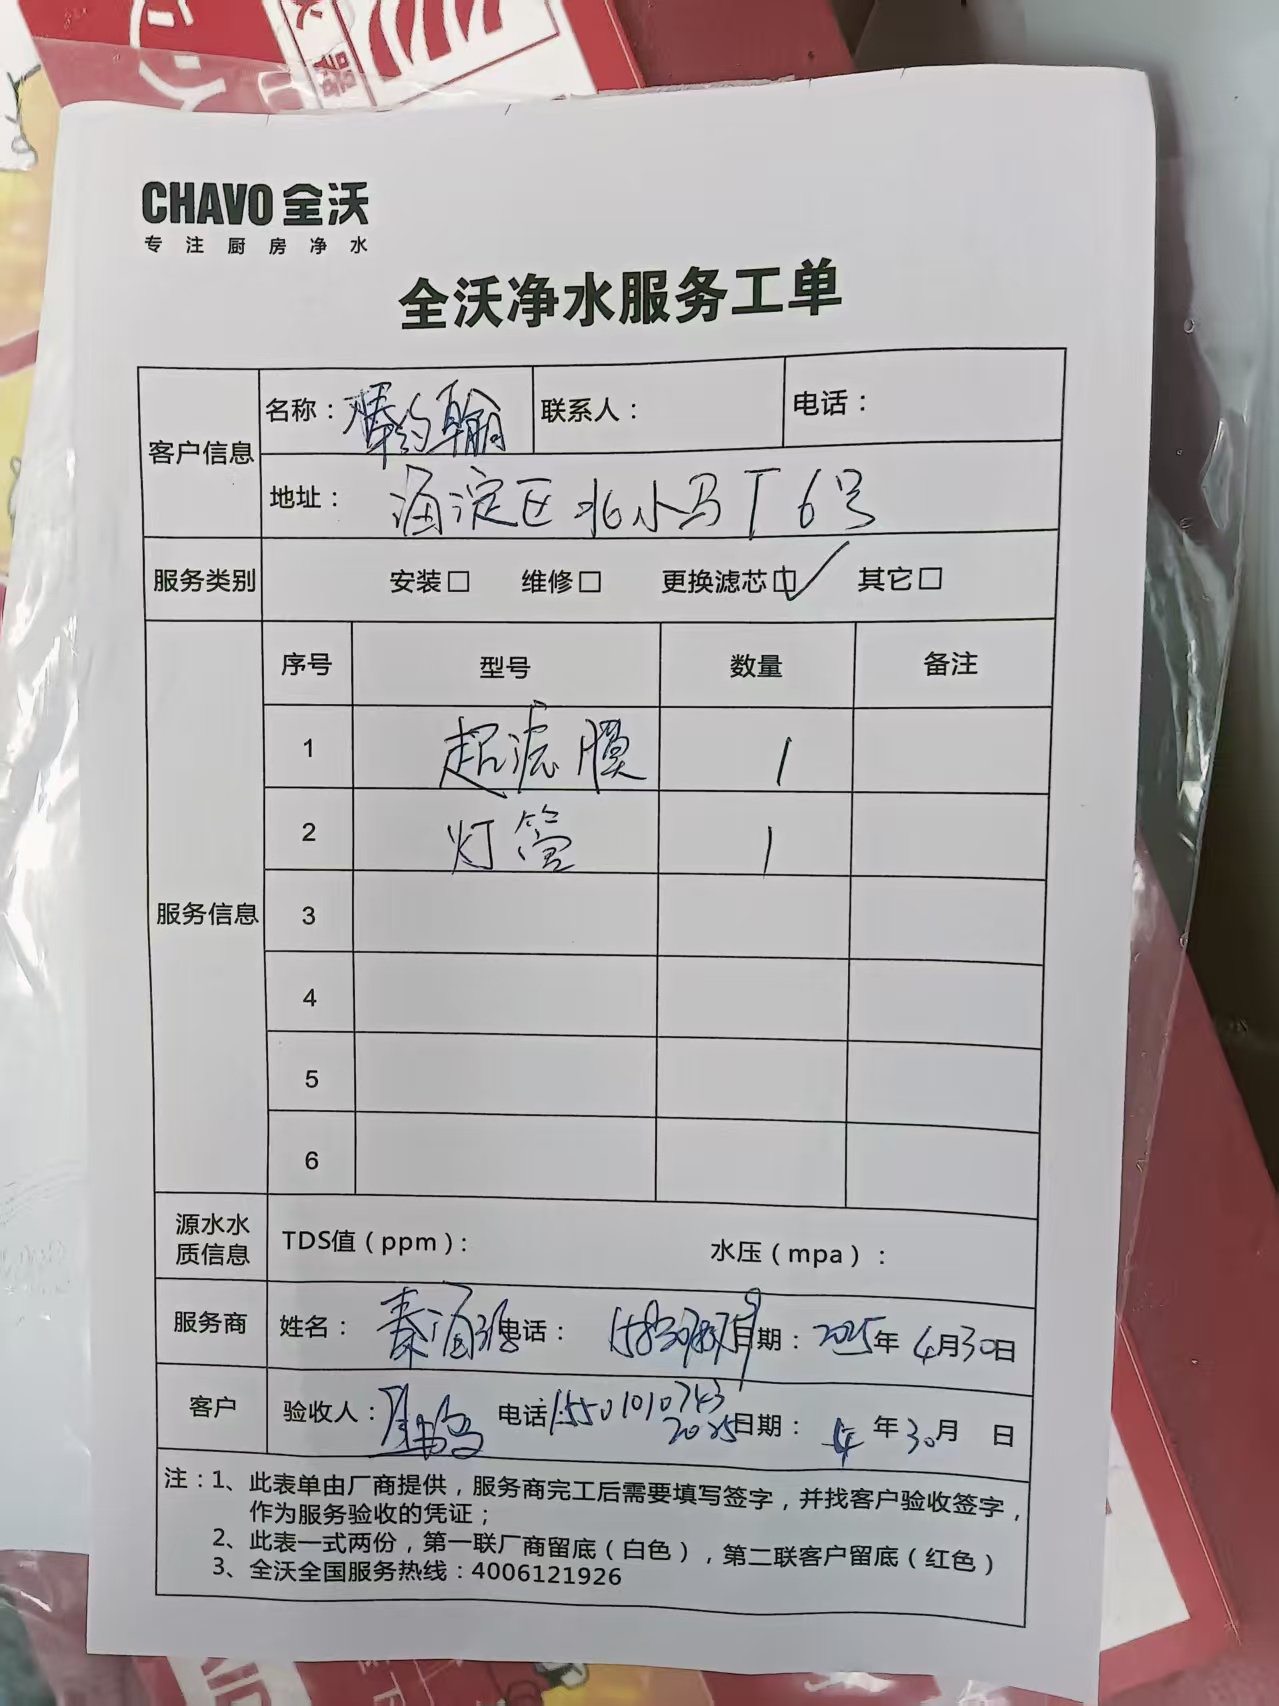 CHAVO 全沃
专注厨房净水
全沃净水服务工单
客户信息
名称： 约翰
联系人：
电话：
地址： 海淀区北小马厂6号
服务类别
安装□ 维修□ 更换滤芯☑ 其它□
服务信息
序号 型号 数量 备注
1 超滤膜 1
2 灯管 1
3
4
5
6
源水水质信息
TDS值（ppm）： 水压（mpa）：
服务商 姓名： 秦 电话： 日期： 2025年 4月30日
客户 验收人： 电话：15501010743 2025日期： 4年30月 日
注：1、此表单由厂商提供，服务商完工后需要填写签字，并找客户验收签字，
作为服务验收的凭证；
2、此表一式两份，第一联厂商留底（白色），第二联客户留底（红色）
3、全沃全国服务热线：4006121926